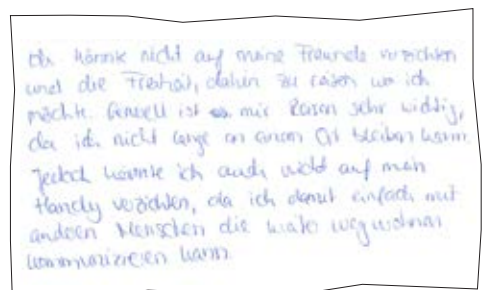 Ich könnte nicht auf meine Freunde verzichten
und die Freiheit, dahin zu reisen wo ich
möchte. Generell ist es mir Reisen sehr wichtig,
da ich nicht lange an einem Ort bleiben kann.
Jedoch könnte ich auch nicht auf mein
Handy verzichten, da ich damit einfach mit
anderen Menschen die weiter weg wohnen
kommunizieren kann.